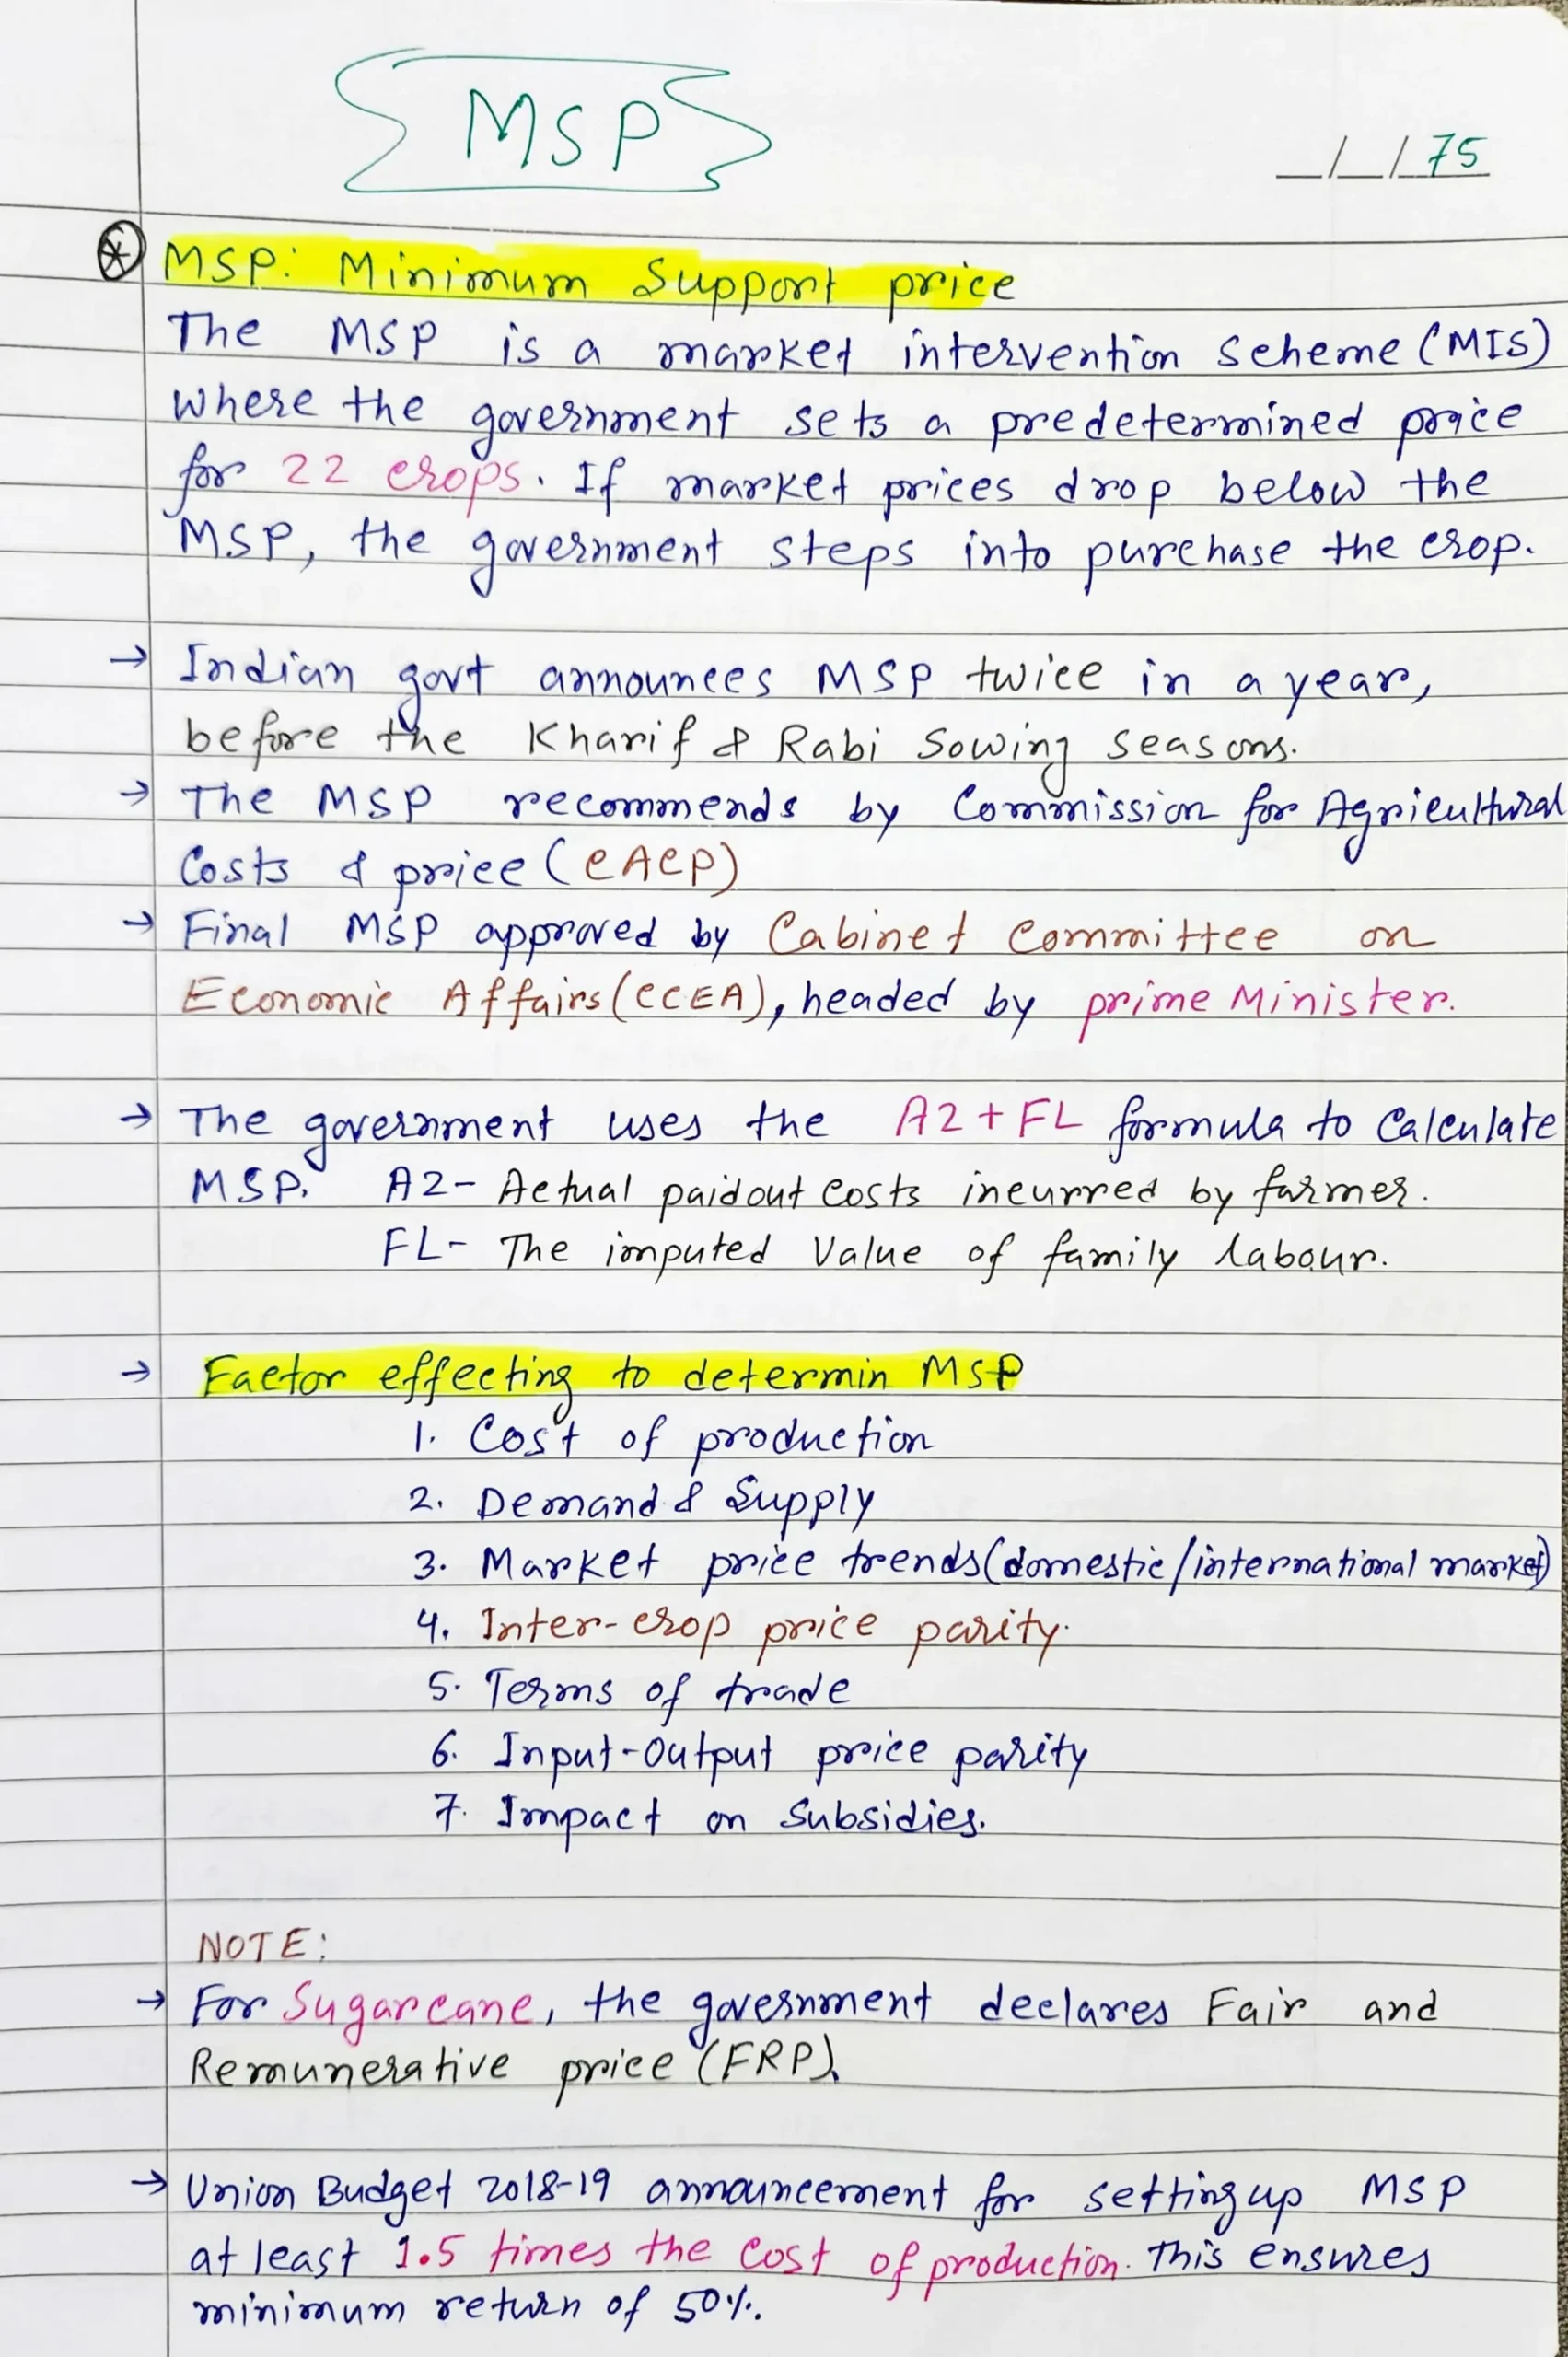 MSP
_/_/75
MSP: Minimum Support price
The MSP is a market intervention scheme (MIS)
where the government sets a predetermined price
for 22 crops. If market prices drop below the
MSP, the government steps into purchase the crop.
→ Indian govt announces MSP twice in a year,
before the Kharif & Rabi Sowing seasons.
→ The MSP recommends by Commission for Agricultural
Costs & price (CACP)
→ Final MSP approved by Cabinet Committee on
Economic Affairs (CCEA), headed by prime Minister.
→ The government uses the A2 + FL formula to Calculate
MSP. A2- Actual paidout Costs incurred by farmer.
FL- The imputed Value of family labour.
→ Factor effecting to determin MSP
1. Cost of production
2. Demand & Supply
3. Market price trends (domestic/international market)
4. Inter-crop price parity.
5. Terms of trade
6. Input-Output price parity
7. Impact on Subsidies.
NOTE:
→ For Sugarcane, the government declares Fair and
Remunerative price (FRP).
→ Union Budget 2018-19 announcement for setting up MSP
at least 1.5 times the Cost of production. This ensures
minimum return of 50%.